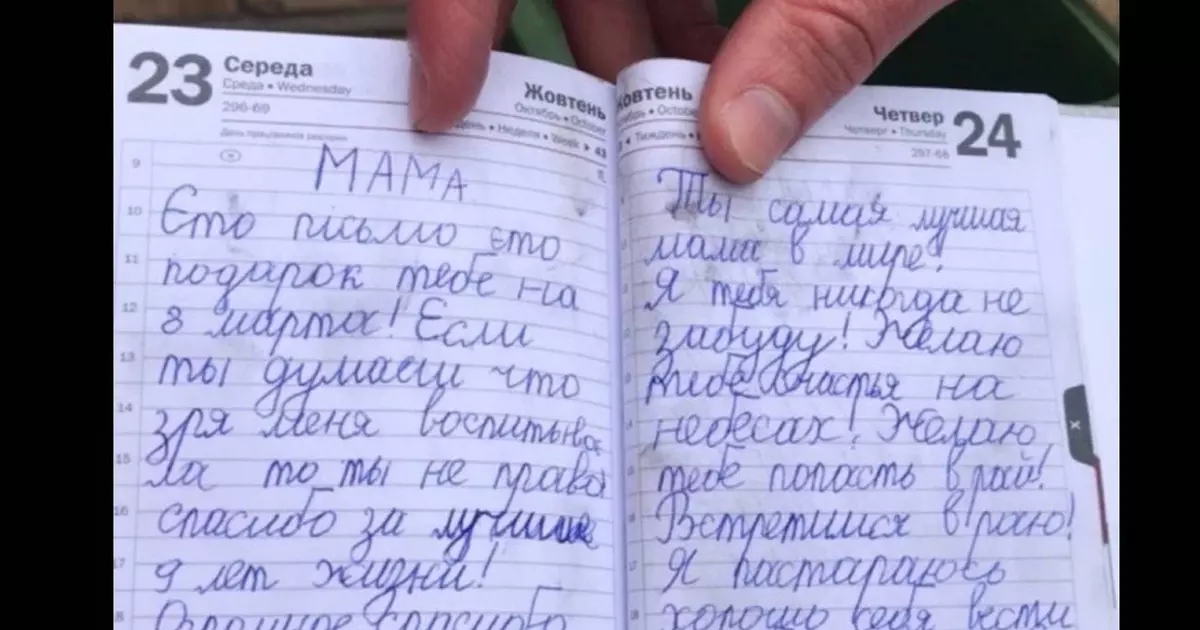 23 Середа
Среда • Wednesday
296-69
День працівників реклами
Жовтень
Октябрь • October
Неделя • Week ▸ 43
9
МАМА
10
Єто письмо єто
11
подарок тебе на
12
8 марта! Если
13
ты думаеш что
14
зря меня воспитыва
15
ла то ты не права
16
спасибо за лучшие
17
9 лет жизни!
18
Огромное спасибо
Жовтень
October
Тиждень
Четвер 24
Четверг • Thursday
297-68
Ты самая лучшая
мама в мире!
Я тебя никогда не
забуду! Желаю
тебе счастья на
небесах! Желаю
тебе попасть в рай!
Встретимся в раю!
Я постараюсь
хорошо себя вести
X